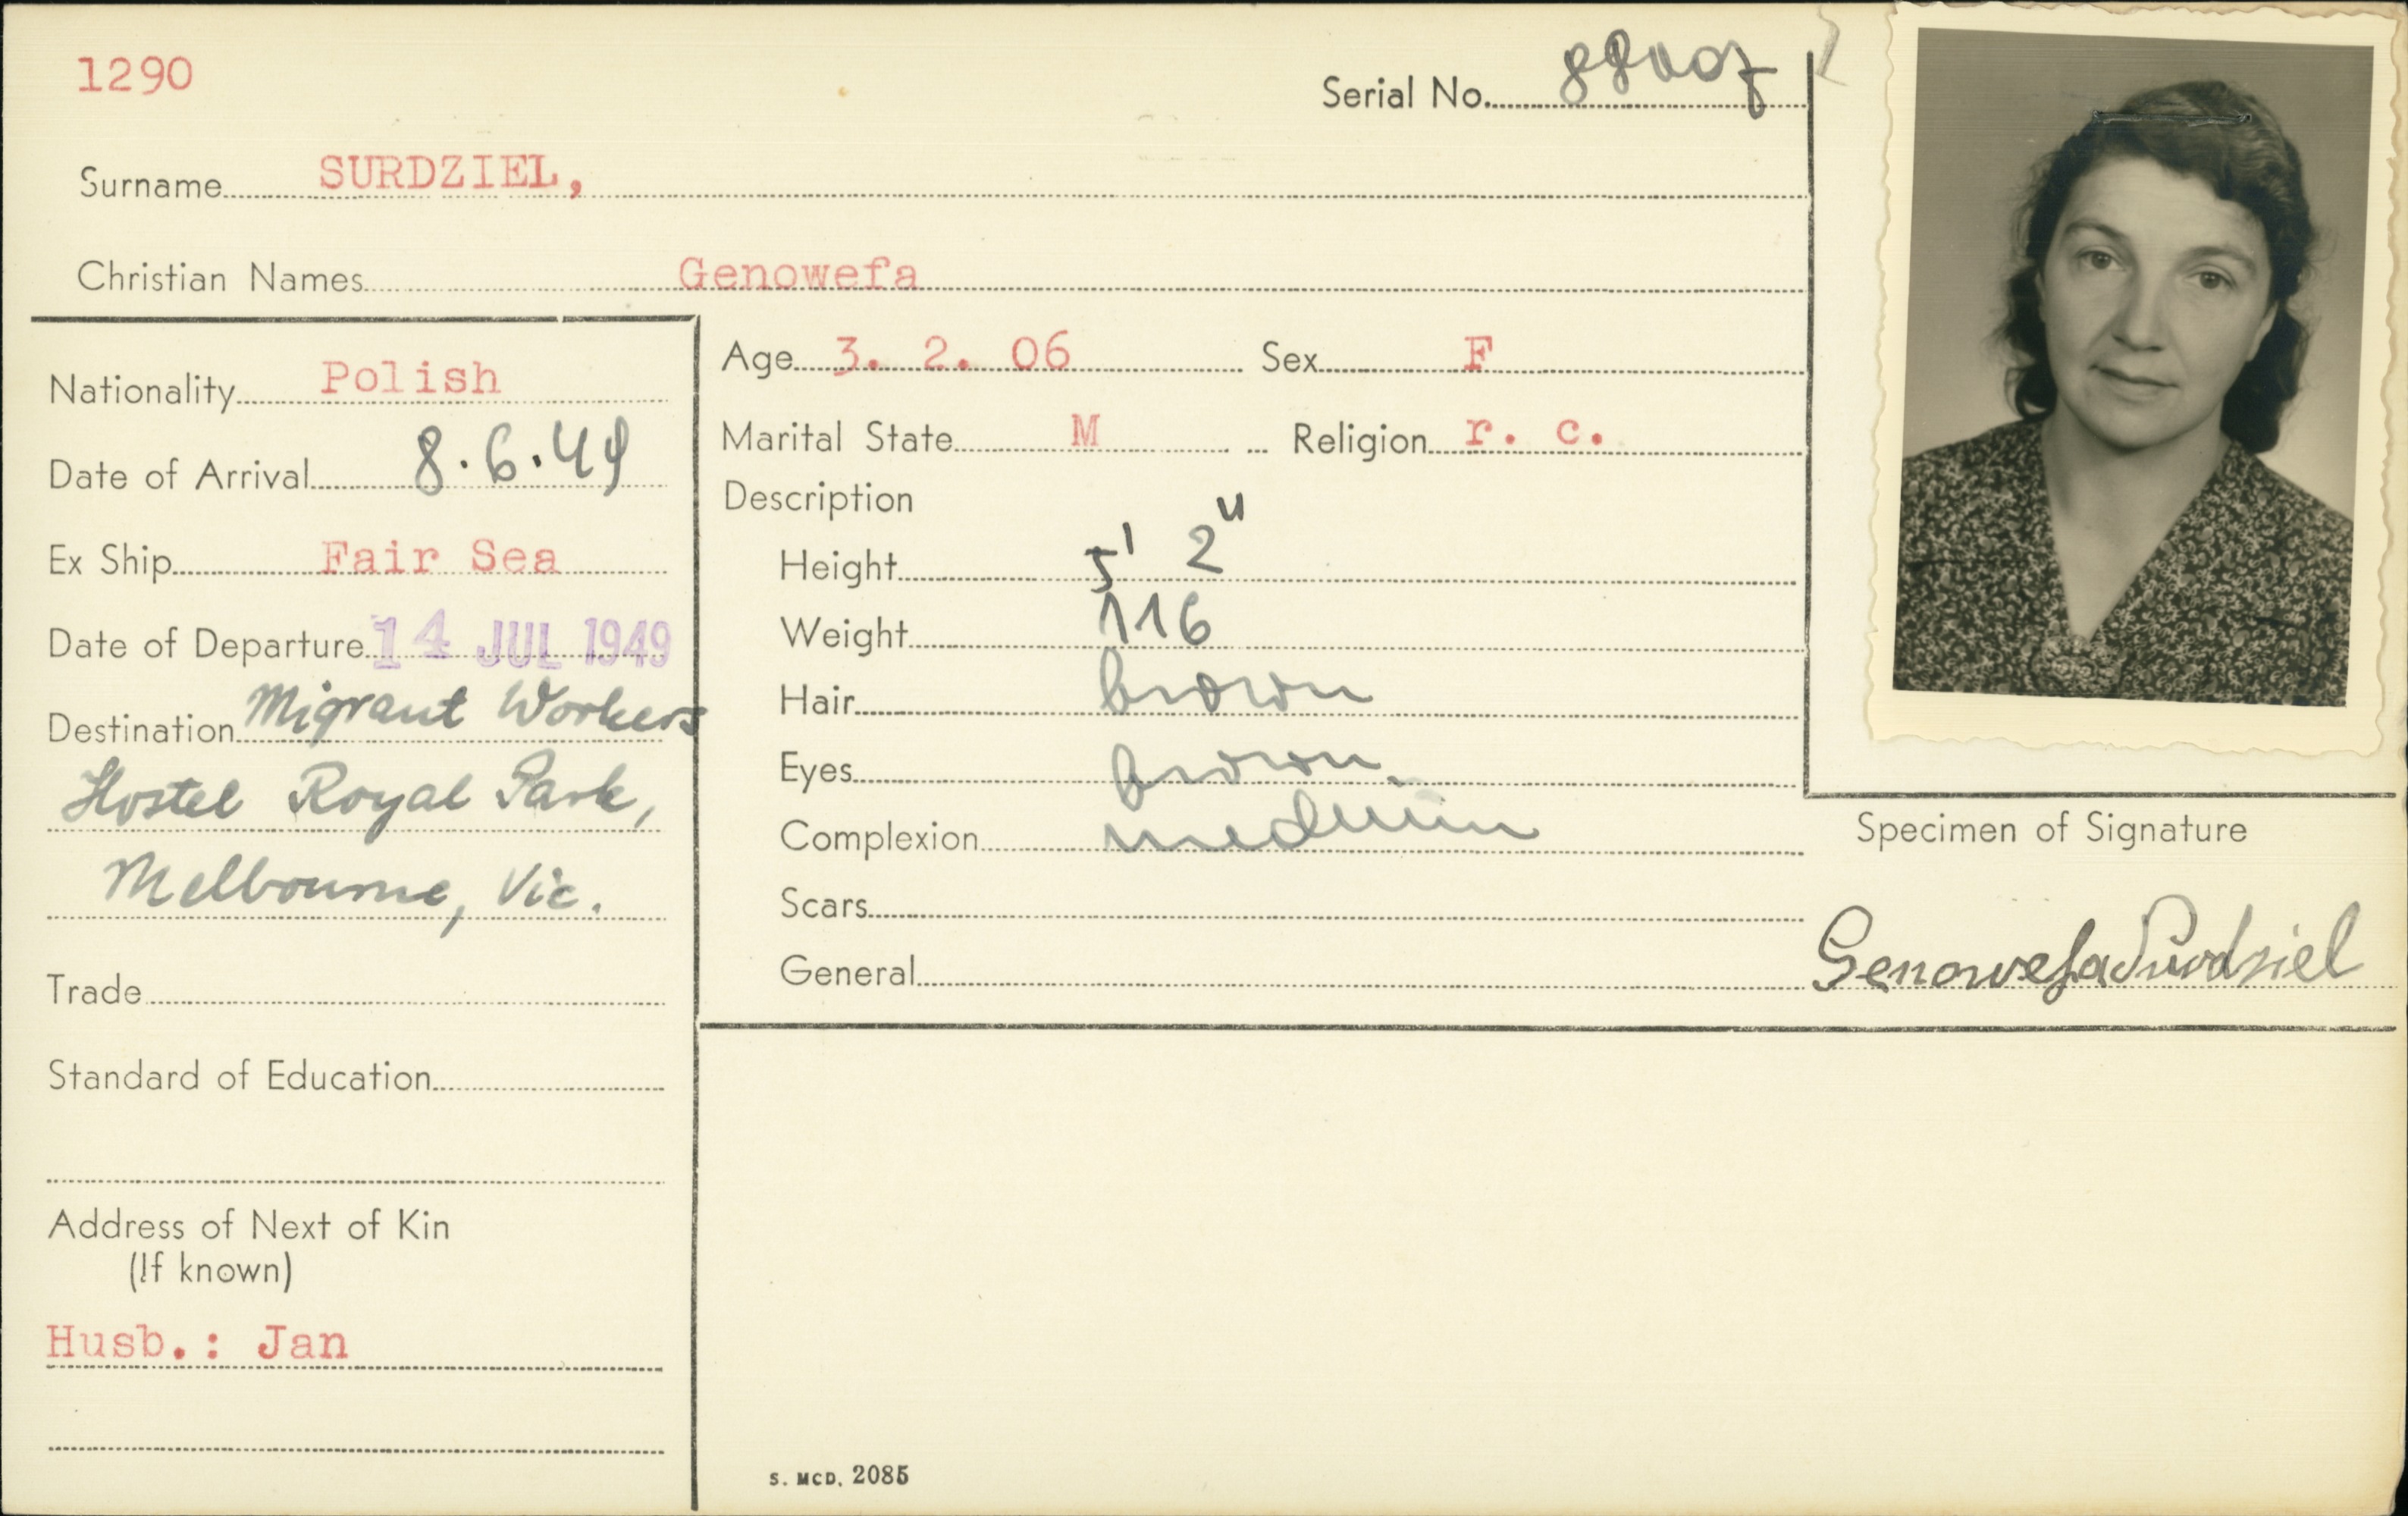 1290
Serial No.
Surname SURDZIEL,
Christian Names Genowefa
Nationality Polish
Date of Arrival 8.6.49
Ex Ship Fair Sea
Date of Departure 14 JUL 1949
Destination Migrant Workers
Hostel Royal Park,
Melbourne, Vic.
Trade
Standard of Education
Address of Next of Kin
(If known)
Husb.: Jan
Age 3. 2. 06 Sex F
Marital State M Religion r. c.
Description
Height 5' 2"
Weight 116
Hair brown
Eyes brown
Complexion medium
Scars
General
Specimen of Signature
Genowefa Surdziel
S. MCD. 2085